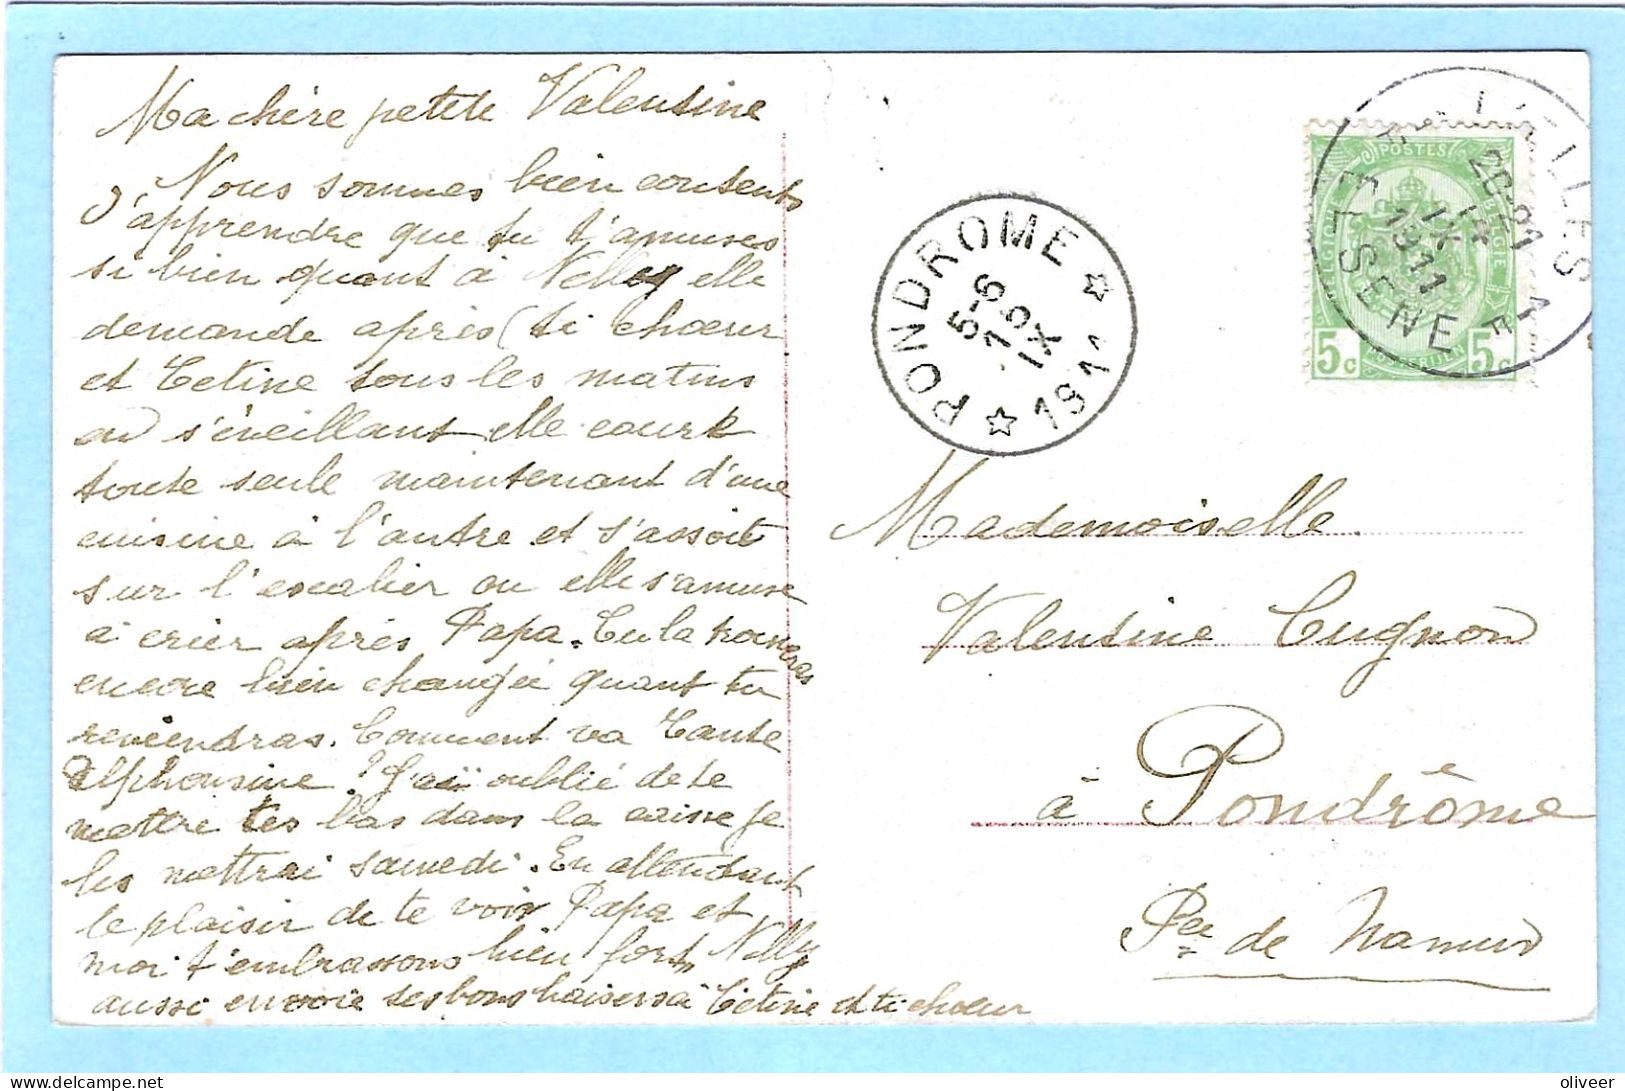 Ma chère petite Valentine
Nous sommes bien contents
d'apprendre que tu t'amuses
si bien quant à Nelly elle
demande après (ti chœur
et Cetine tous les matins
en s'éveillant elle court
toute seule maintenant d'une
cuisine à l'autre et s'assoit
sur l'escalier ou elle s'amuse
à crier après Papa. Tu la trouveras
encore bien changée quant tu
reviendras. Comment va Tante
Alphonsine? J'ai oublié de te
mettre tes bas dans la caisse je
les mettrai samedi. En attendant
le plaisir de te voir Papa et
moi t'embrassons bien fort, Nelly
aussi envoie ses bons baisers à Cetine et ti chœur
PONDROME
5-6
15
IX
1911
POSTES
BELGIQUE
BELGIË
5c
5c
POSTERIJEN
IXELLES 1
ELSENE 1
IX
1911
Mademoiselle
Valentine Cugnon
à Pondrôme
Pce de Namur
oliveer